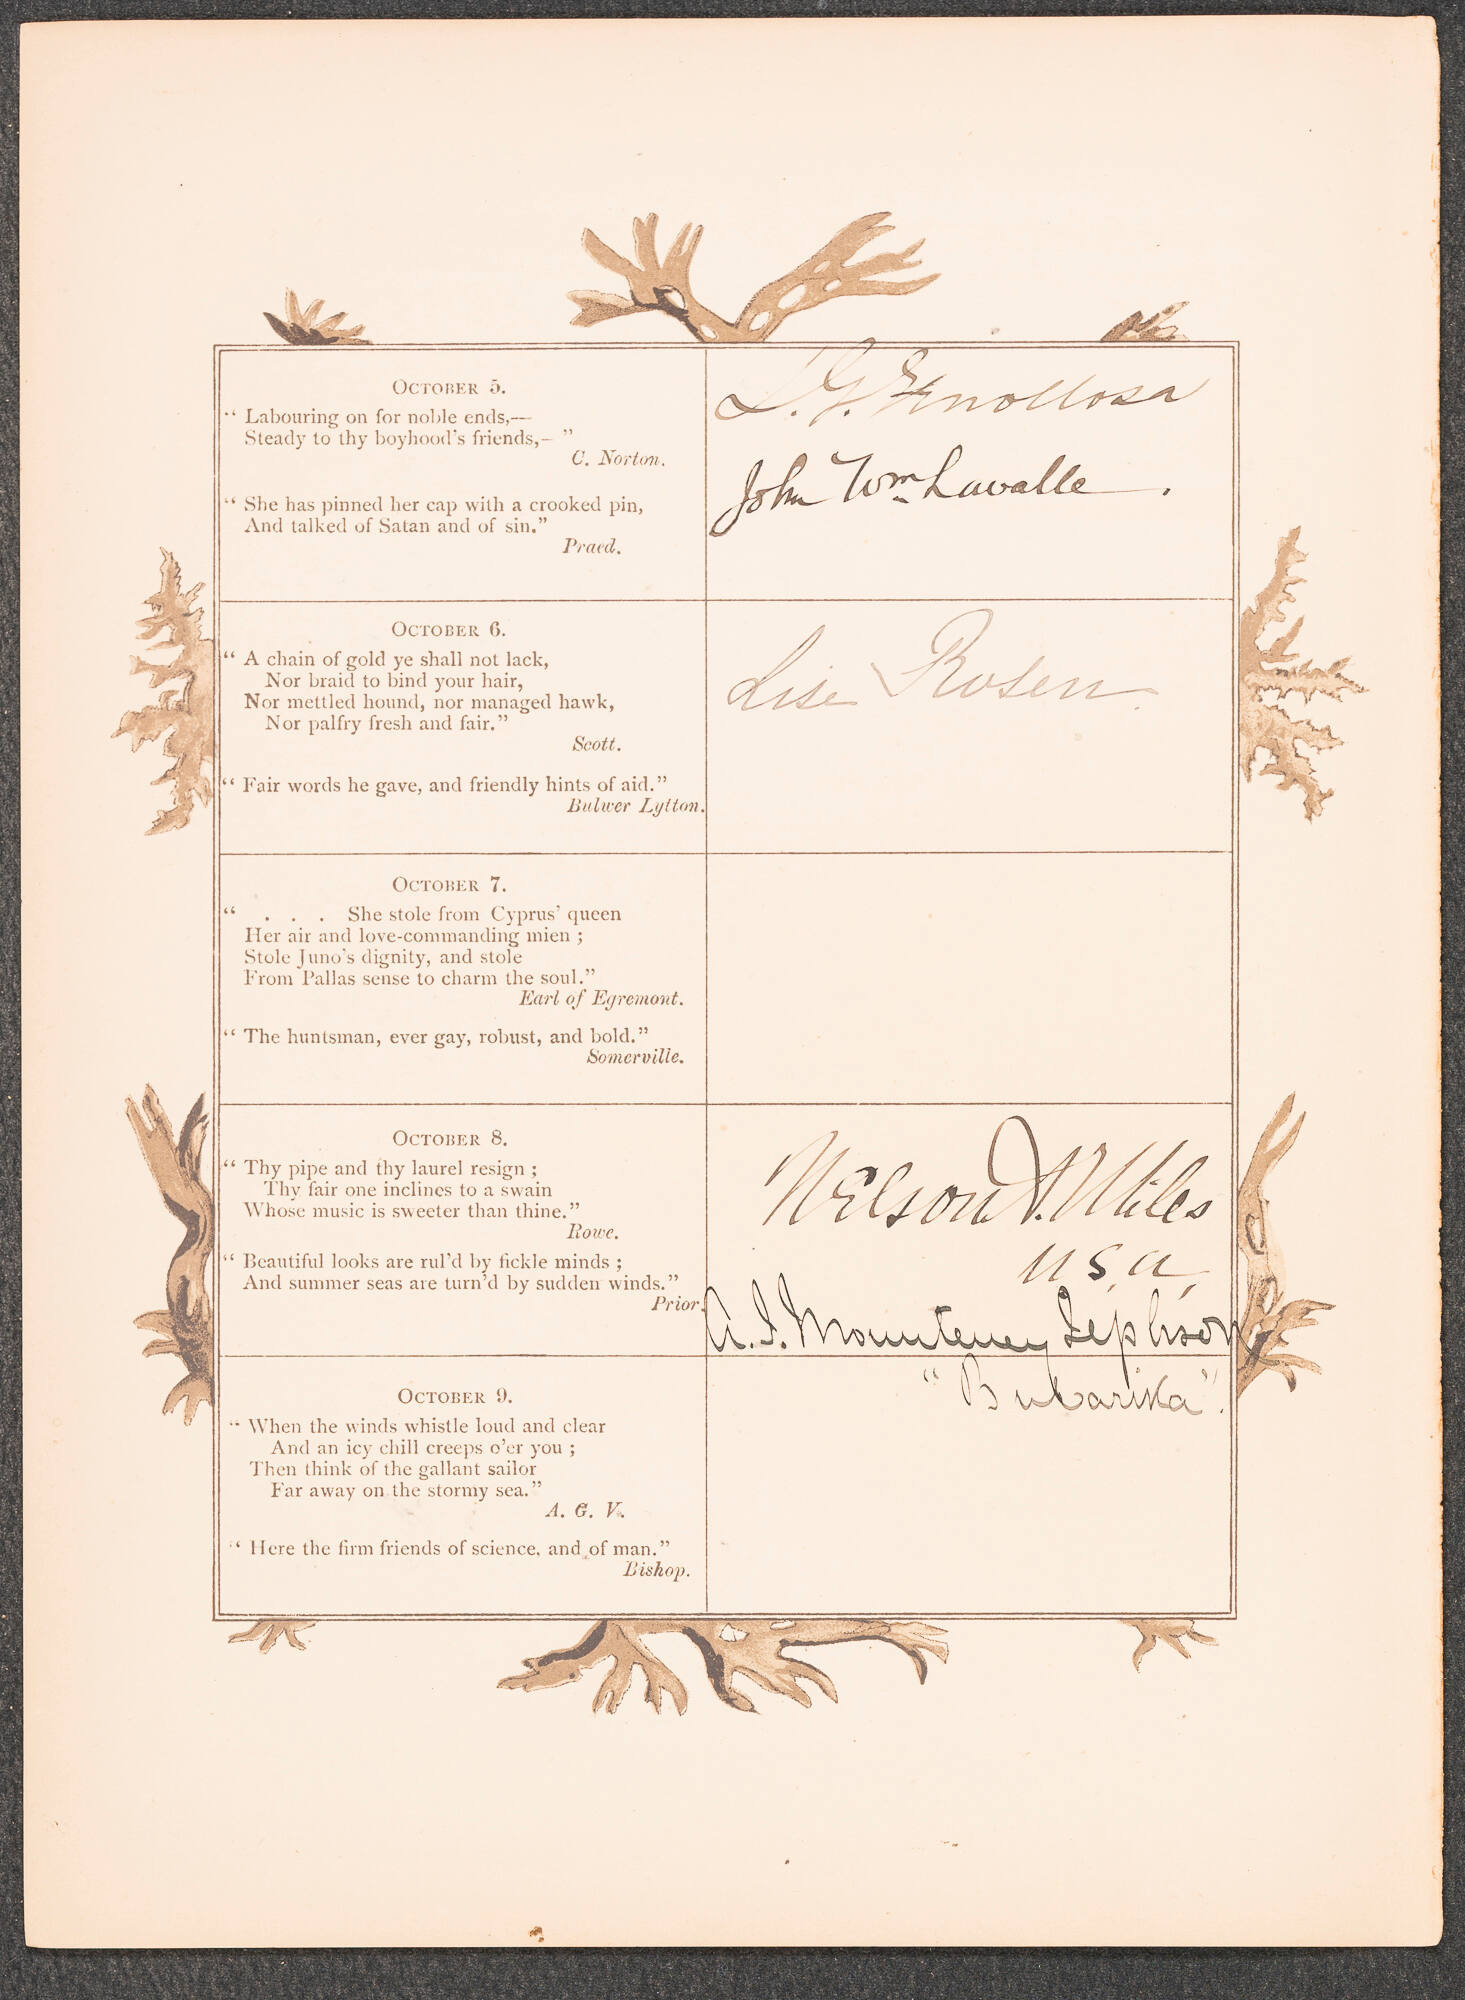 OCTOBER 5.
“ Labouring on for noble ends,—
Steady to thy boyhood's friends,— ”
C. Norton.
“ She has pinned her cap with a crooked pin,
And talked of Satan and of sin.”
Praed.
L. G. Fenollosa
John Wm Lavalle.
OCTOBER 6.
“ A chain of gold ye shall not lack,
Nor braid to bind your hair,
Nor mettled hound, nor managed hawk,
Nor palfry fresh and fair.”
Scott.
“ Fair words he gave, and friendly hints of aid.”
Bulwer Lytton.
Lise Rosen.
OCTOBER 7.
“ . . . She stole from Cyprus' queen
Her air and love-commanding mien ;
Stole Juno's dignity, and stole
From Pallas sense to charm the soul.”
Earl of Egremont.
“ The huntsman, ever gay, robust, and bold.”
Somerville.
OCTOBER 8.
“ Thy pipe and thy laurel resign ;
Thy fair one inclines to a swain
Whose music is sweeter than thine.”
Rowe.
“ Beautiful looks are rul'd by fickle minds ;
And summer seas are turn'd by sudden winds.”
Prior.
Nelson A. Miles
U.S.A.
A. J. Mounteney Jephson
“Bubarika”.
OCTOBER 9.
“ When the winds whistle loud and clear
And an icy chill creeps o'er you ;
Then think of the gallant sailor
Far away on the stormy sea.”
A. G. V.
“ Here the firm friends of science, and of man.”
Bishop.